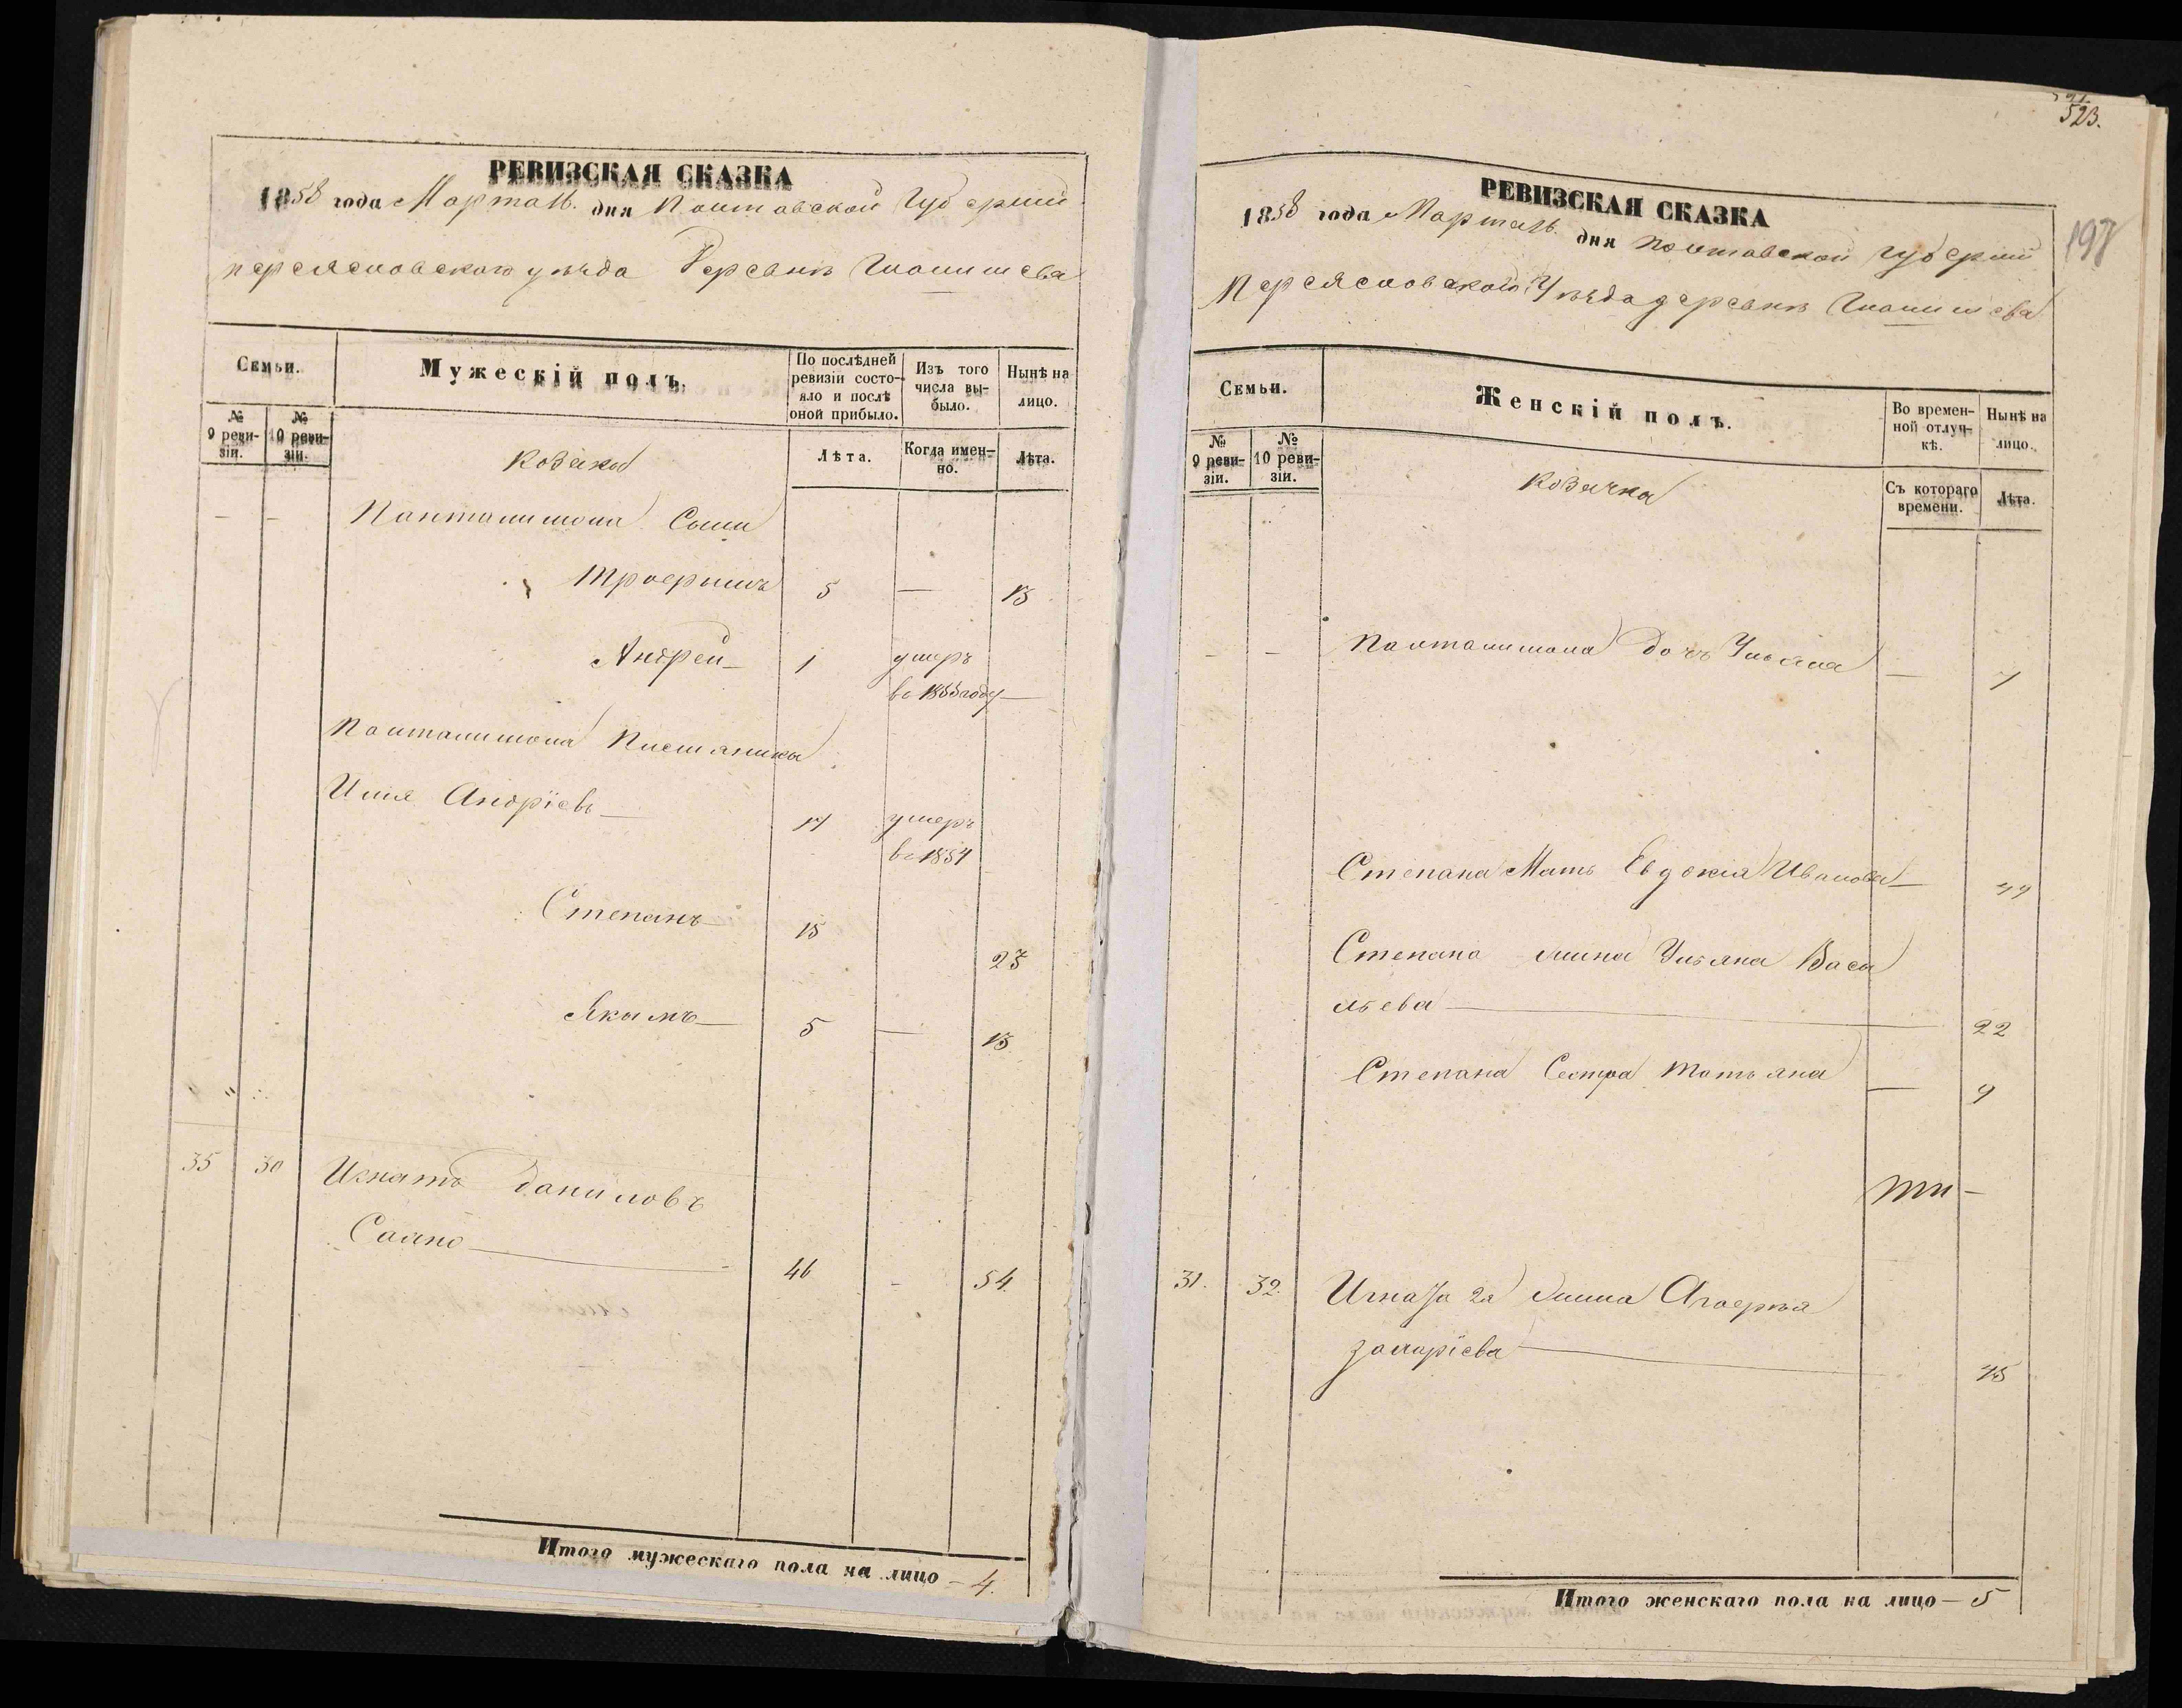 РЕВИЗСКАЯ СКАЗКА
1858 года Марта 16. дня Полтавской Губерніи
Переясловского уѣзда Деревни
Семьи.
Мужескій полъ.
По послѣдней ревизіи состояло и послѣ оной прибыло.
Изъ того числа выбыло.
Нынѣ на лицо.
№ 9 ревизіи.
№ 10 ревизіи.
Козаки
Лѣта.
Когда именно.
Лѣта.
— — Панталимона Сыни
5 — 13
Андрей 1 умеръ
во 1855 году
Панталимона Племяники
Илія Андріевъ 17 умеръ
во 1854
Степанъ 15
23
Якимъ 5 — 13
35 30 Игнатъ Даниловъ
46 - 54.
Итого мужескаго пола на лицо — 4.
523.
197
РЕВИЗСКАЯ СКАЗКА
1858 года Марта 16. дня Полтавской Губерніи
Переясловского Уѣзда деревни
Семьи.
Женскій полъ.
Во временной отлучкѣ.
Нынѣ на лицо.
№ 9 ревизіи.
№ 10 ревизіи.
Козачка
Съ котораго времени.
Лѣта.
— — Панталимона дочъ Ульяна — 7
Степана Мать Евдокія Иванова 44
Степана жина Ульяна Васи
льева 22
Степана Сестра Татьяна — 9
31. 32. Игната 2я жина
Захаріева
45
Итого женскаго пола на лицо — 5